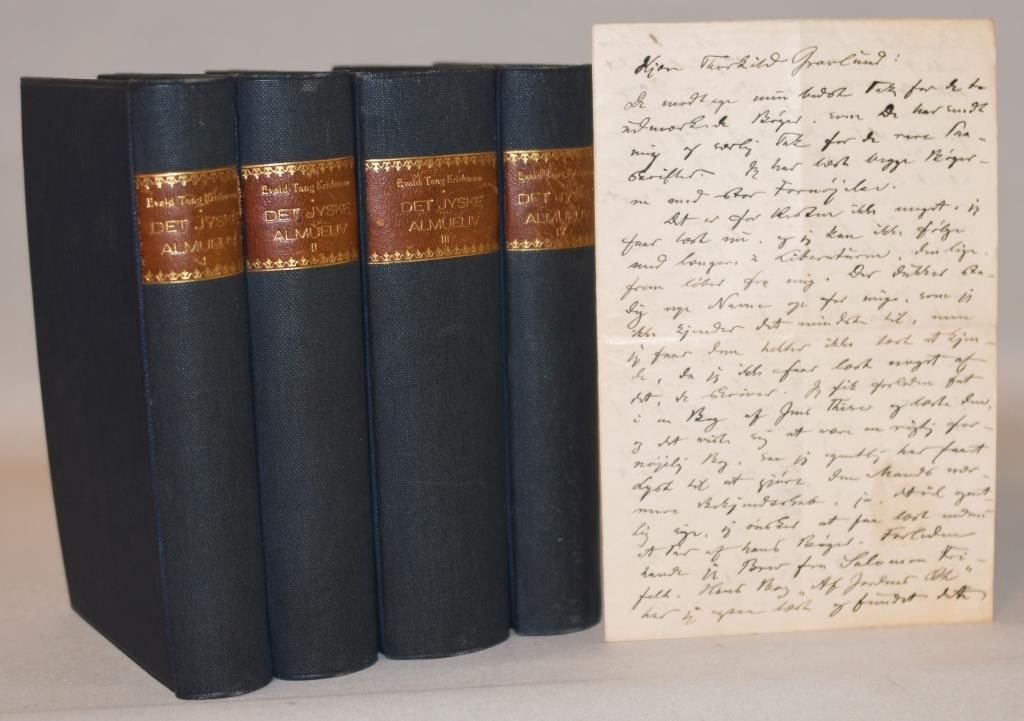 Evald Tang Kristensen
DET JYSKE
ALMUELIV
I
Evald Tang Kristensen
DET JYSKE
ALMUELIV
II
Evald Tang Kristensen
DET JYSKE
ALMUELIV
III
Evald Tang Kristensen
DET JYSKE
ALMUELIV
IV
Kjære Thorkild Gravlund:
De modtage min bedste Tak for de to
udmærkede Bøger, som De har sendt
mig og særlig Tak for de rare Paa-
skrifter. Jeg har læst begge Bøger-
ne med stor Fornøjelse.
Det er for Resten ikke meget, jeg
faar læst nu, og jeg kan ikke følge
med længere i Literaturen, den lige-
frem løber fra mig. Der dukker sta-
dig nye Navne op for mig, som jeg
ikke kjender det mindste til, men
jeg faar dem heller ikke lært at kjen-
de, da jeg ikke faar læst noget af
det, de skriver. Jeg fik forleden fat
i en Bog af Jens Thise og læste den,
og det viste sig at være en rigtig for-
nøjelig Bog, saa jeg egentlig har faaet
Lyst til at gjøre den Mands nær-
mere Bekjendtskab, ja,
lig sige, jeg ønsker at faa læst endnu
et Par af hans Bøger. Forleden
havde jeg Brev fra Salomon Fri-
felt. Hans Bog „Af Jordens Æt“
har jeg ogsaa læst og fundet dette